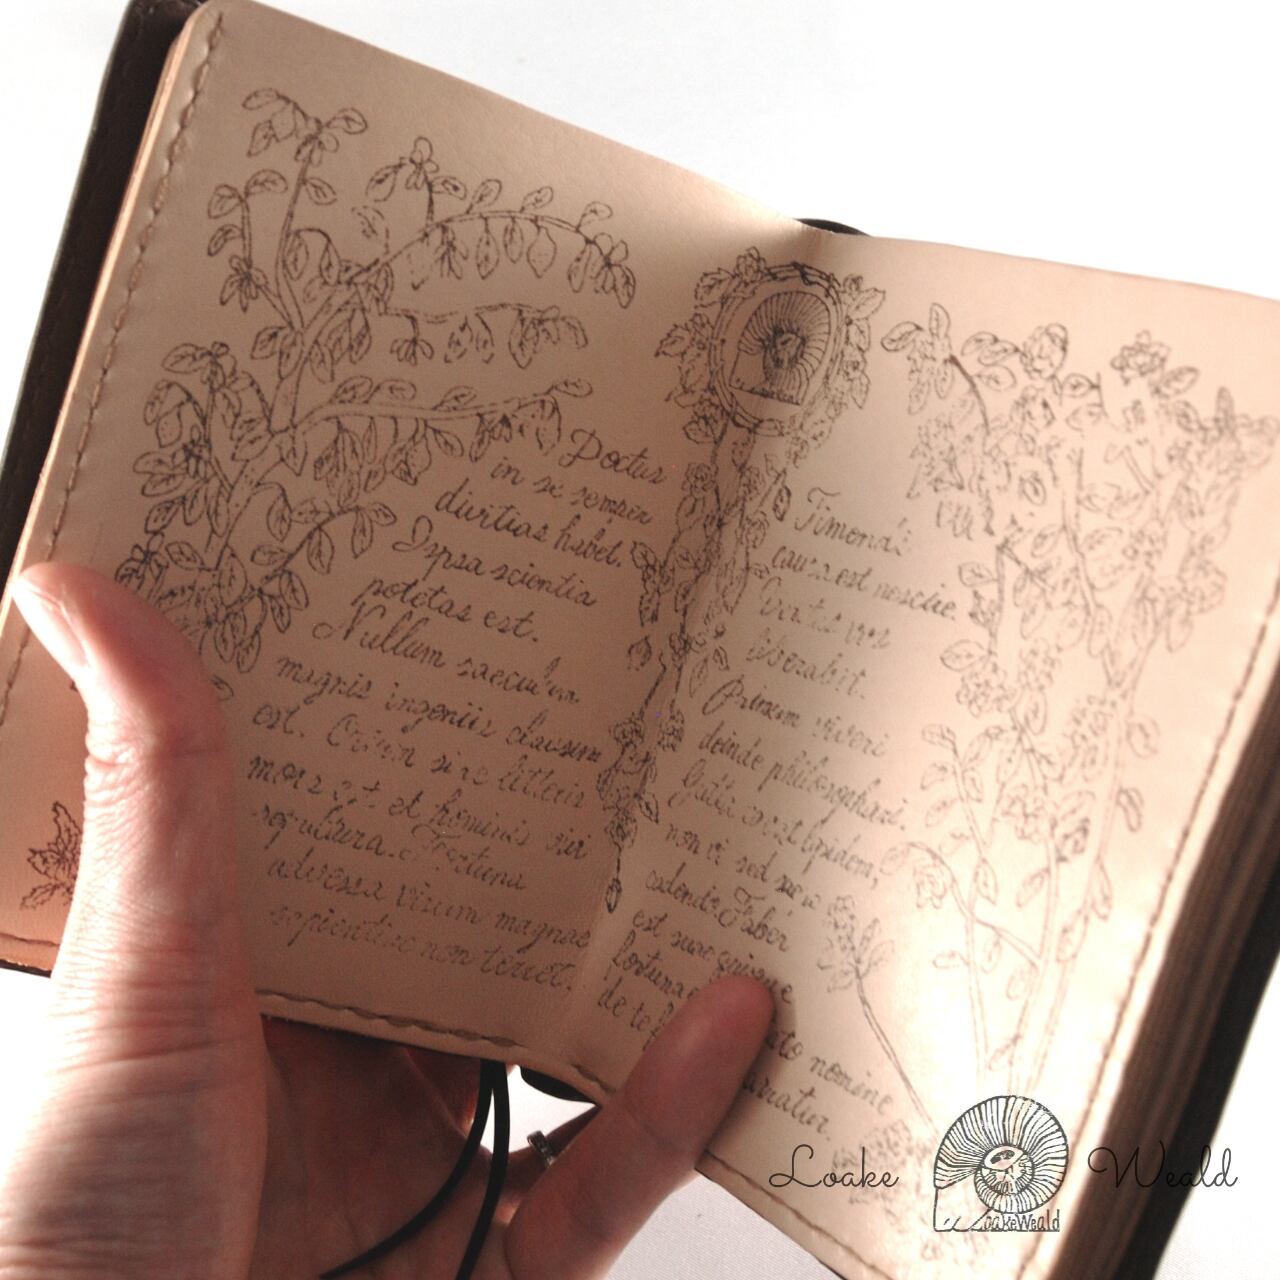 Doctus
in se semper
divitias habet.
Ipsa scientia
potetas est.
Nullum saeculum
magnis ingeniis clausum
est. Otium sine litteris
mors est et hominis vivi
sepultura. Fortuna
adversa virum magnae
sapientiae non terret.
Timendi
causa est nescire.
Veritas vos
liberabit.
Primum viveri
deinde philosophari.
Gutta cavat lapidem,
non vi sed saepe
cadendo. Faber
est suae quisque
fortunae
de te nomine
narratur.
Loake Weald
LoakeWeald